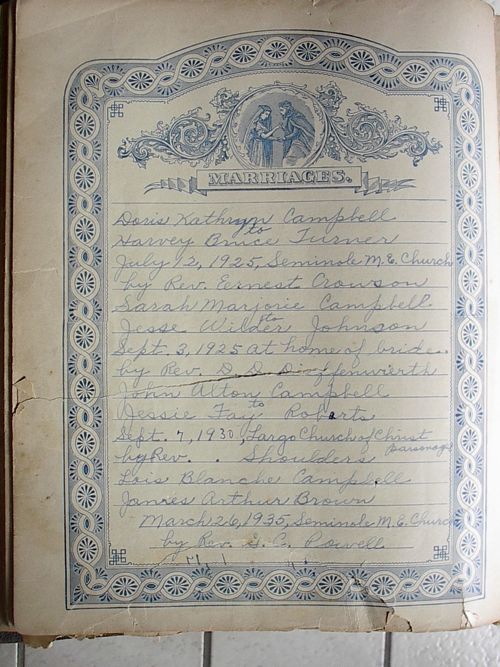 MARRIAGES.
Doris Kathryn Campbell
to
Harvey Bruce Turner
July 12, 1925, Seminole M.E. Church
by Rev. Eernest Crowson
Sarah Marjorie Campbell
to
Jesse Wilder Johnson
Sept. 3, 1925 at home of bride.
by Rev. D. D.
John Alton Campbell
to
Jessie Fay Roberts
Sept. 7, 1930, Largo Church of Christ
parsonage
by Rev. . Shoulders
Lois Blanche Campbell
James Arthur Brown
March 26, 1935, Seminole M.E. Church
by Rev. G. C. Powell